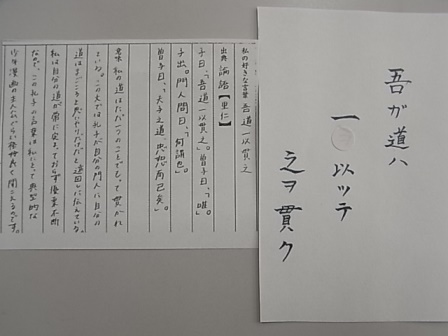 吾が道ハ
一以ッテ
之ヲ貫ク
私の好きな言葉 吾道一以貫之
出典 論語【里仁】
子曰、「吾道一以貫之」。曽子曰、「唯」。
子出。門人問曰、「何謂也」。
曽子曰、「夫子之道、忠恕而已矣」。
意味 私の道はただ一つのことでもって貫かれ
ている。この文では孔子が自分の門人に自分の
道はまごころと思いやりだけだと遠回しに伝えている。
私は自分の道が常に定まっておらず優柔不断
なので、この孔子の言葉は私にとって典型的な
少年漫画の主人公くらい格好良く聞こえるのです。